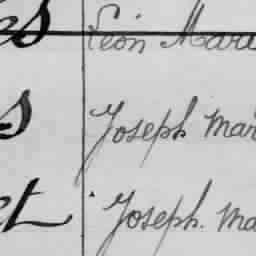 es Léon Marie
s Joseph Mar
et Joseph. Ma